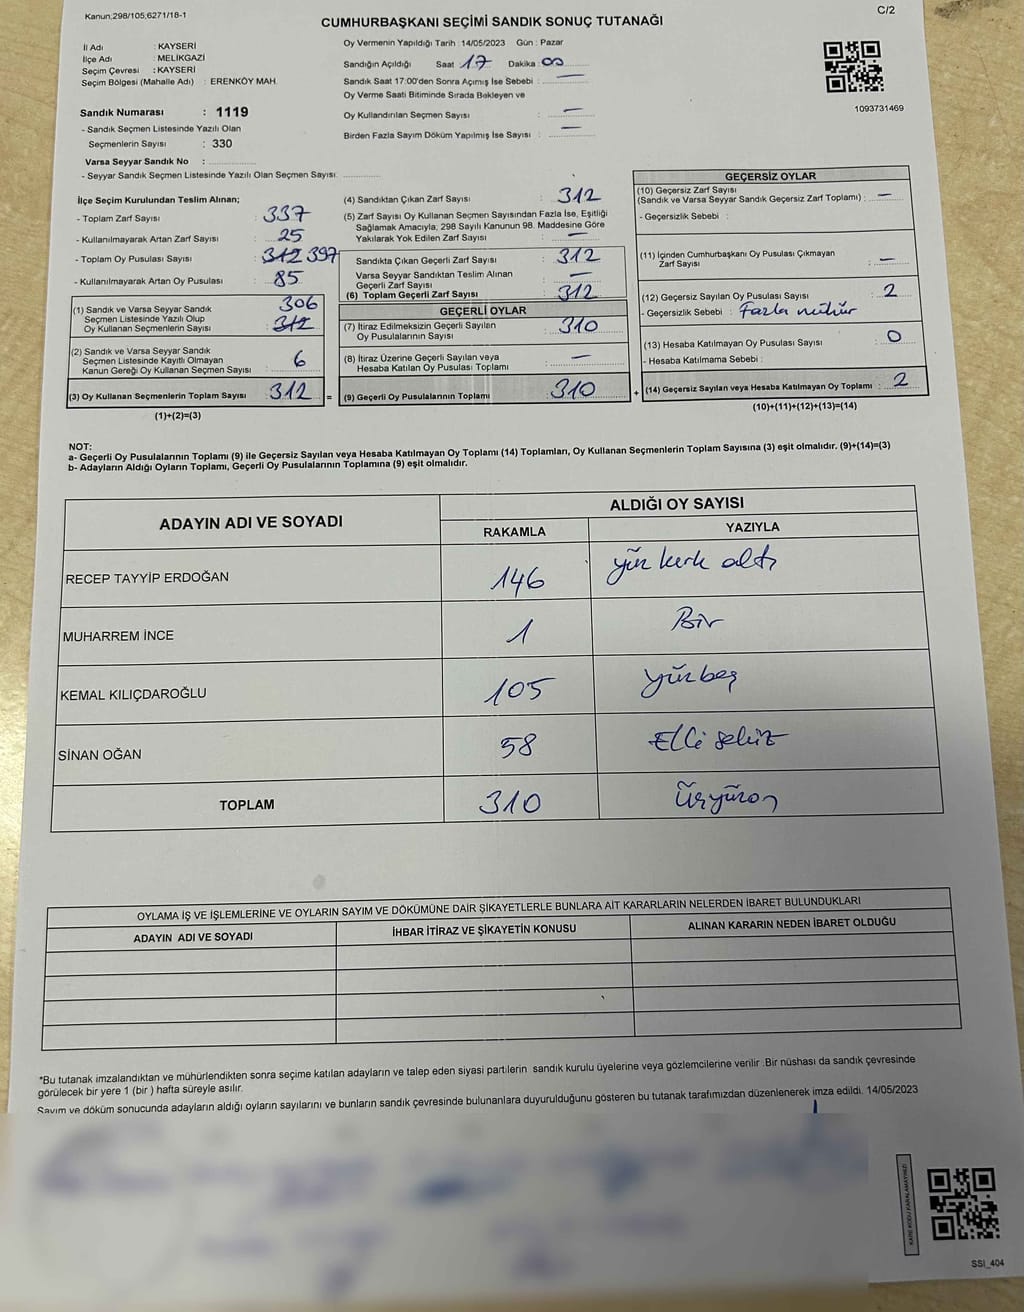 Kanun;298/105,6271/18-1
C/2
CUMHURBAŞKANI SEÇİMİ SANDIK SONUÇ TUTANAĞI
İl Adı : KAYSERİ
İlçe Adı : MELİKGAZİ
Seçim Çevresi : KAYSERİ
Seçim Bölgesi (Mahalle Adı) : ERENKÖY MAH.
Sandık Numarası : 1119
- Sandık Seçmen Listesinde Yazılı Olan
Seçmenlerin Sayısı : 330
Varsa Seyyar Sandık No :
- Seyyar Sandık Seçmen Listesinde Yazılı Olan Seçmen Sayısı:
Oy Vermenin Yapıldığı Tarih : 14/05/2023 Gün : Pazar
Sandığın Açıldığı Saat 17 Dakika : 00
Sandık Saat 17:00'den Sonra Açımış İse Sebebi : —
Oy Verme Saati Bitiminde Sırada Bekleyen ve
Oy Kullandırılan Seçmen Sayısı : —
Birden Fazla Sayım Döküm Yapılmış İse Sayısı : —
1093731469
İlçe Seçim Kurulundan Teslim Alınan;
- Toplam Zarf Sayısı : 337
- Kullanılmayarak Artan Zarf Sayısı : 25
- Toplam Oy Pusulası Sayısı : 312 397
- Kullanılmayarak Artan Oy Pusulası : 85
(1) Sandık ve Varsa Seyyar Sandık 306
Seçmen Listesinde Yazılı Olup
Oy Kullanan Seçmenlerin Sayısı : 312
(2) Sandık ve Varsa Seyyar Sandık
Seçmen Listesinde Kayıtlı Olmayan
Kanun Gereği Oy Kullanan Seçmen Sayısı : 6
(3) Oy Kullanan Seçmenlerin Toplam Sayısı : 312 =
(1)+(2)=(3)
(4) Sandıktan Çıkan Zarf Sayısı : 312
(5) Zarf Sayısı Oy Kullanan Seçmen Sayısından Fazla İse, Eşitliği
Sağlamak Amacıyla, 298 Sayılı Kanunun 98. Maddesine Göre
Yakılarak Yok Edilen Zarf Sayısı : —
Sandıkta Çıkan Geçerli Zarf Sayısı : 312
Varsa Seyyar Sandıktan Teslim Alınan
Geçerli Zarf Sayısı : —
(6) Toplam Geçerli Zarf Sayısı : 312
GEÇERLİ OYLAR
(7) İtiraz Edilmeksizin Geçerli Sayılan
Oy Pusulalarının Sayısı : 310
(8) İtiraz Üzerine Geçerli Sayılan veya
Hesaba Katılan Oy Pusulası Toplamı : —
(9) Geçerli Oy Pusulalarının Toplamı : 310 +
GEÇERSİZ OYLAR
(10) Geçersiz Zarf Sayısı
(Sandık ve Varsa Seyyar Sandık Geçersiz Zarf Toplamı) : —
- Geçersizlik Sebebi :
(11) İçinden Cumhurbaşkanı Oy Pusulası Çıkmayan
Zarf Sayısı : —
(12) Geçersiz Sayılan Oy Pusulası Sayısı : 2
- Geçersizlik Sebebi : Fazla mühür
(13) Hesaba Katılmayan Oy Pusulası Sayısı : 0
- Hesaba Katılmama Sebebi :
(14) Geçersiz Sayılan veya Hesaba Katılmayan Oy Toplamı : 2
(10)+(11)+(12)+(13)=(14)
NOT:
a- Geçerli Oy Pusulalarının Toplamı (9) ile Geçersiz Sayılan veya Hesaba Katılmayan Oy Toplamı (14) Toplamları, Oy Kullanan Seçmenlerin Toplam Sayısına (3) eşit olmalıdır. (9)+(14)=(3)
b- Adayların Aldığı Oyların Toplamı, Geçerli Oy Pusulalarının Toplamına (9) eşit olmalıdır.
ADAYIN ADI VE SOYADI
ALDIĞI OY SAYISI
RAKAMLA YAZIYLA
RECEP TAYYİP ERDOĞAN 146 yüz kırk altı
MUHARREM İNCE 1 Bir
KEMAL KILIÇDAROĞLU 105 yüzbeş
SİNAN OĞAN 58 Elli sekiz
TOPLAM 310 Üçyüzon
OYLAMA İŞ VE İŞLEMLERİNE VE OYLARIN SAYIM VE DÖKÜMÜNE DAİR ŞİKAYETLERLE BUNLARA AİT KARARLARIN NELERDEN İBARET BULUNDUKLARI
ADAYIN ADI VE SOYADI İHBAR İTİRAZ VE ŞİKAYETİN KONUSU ALINAN KARARIN NEDEN İBARET OLDUĞU
*Bu tutanak imzalandıktan ve mühürlendikten sonra seçime katılan adayların ve talep eden siyasi partilerin sandık kurulu üyelerine veya gözlemcilerine verilir .Bir nüshası da sandık çevresinde
görülecek bir yere 1 (bir) hafta süreyle asılır.
Sayım ve döküm sonucunda adayların aldığı oyların sayılarını ve bunların sandık çevresinde bulunanlara duyurulduğunu gösteren bu tutanak tarafımızdan düzenlenerek imza edildi. 14/05/2023
KARE KODU KARALAMAYINIZ!
SSİ_404